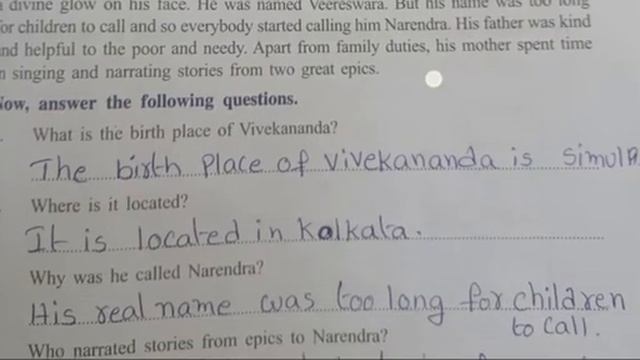 a divine glow on his face. He was named Veereswara. But his name was too long
for children to call and so everybody started calling him Narendra. His father was kind
and helpful to the poor and needy. Apart from family duties, his mother spent time
in singing and narrating stories from two great epics.
Now, answer the following questions.
What is the birth place of Vivekananda?
The birth Place of Vivekananda is Simula
Where is it located?
It is located in Kolkata.
Why was he called Narendra?
His real name was too long for children
to call.
Who narrated stories from epics to Narendra?